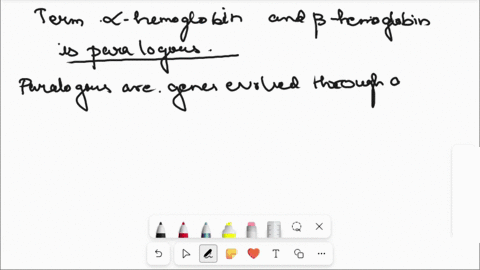 Term α-hemoglobin and β-hemoglobin
is paralogous.
Paralogous are. genes evolved through a